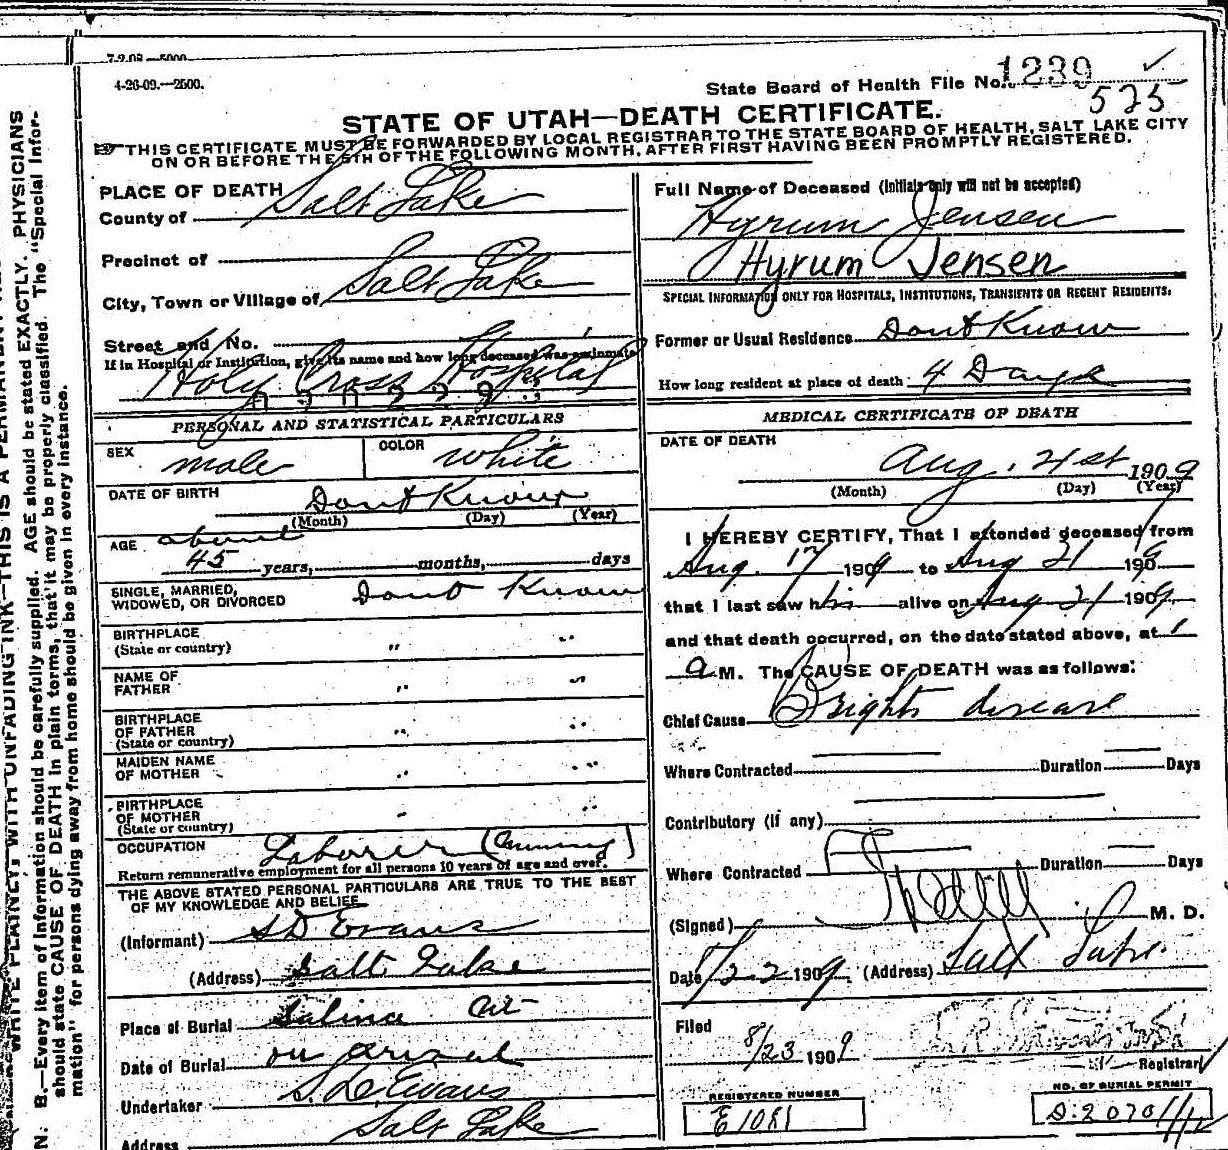 7-2-08—5000.
4-26-09.—2500.
State Board of Health File No. 1239
525
STATE OF UTAH—DEATH CERTIFICATE.
THIS CERTIFICATE MUST BE FORWARDED BY LOCAL REGISTRAR TO THE STATE BOARD OF HEALTH, SALT LAKE CITY
ON OR BEFORE THE 5TH OF THE FOLLOWING MONTH, AFTER FIRST HAVING BEEN PROMPTLY REGISTERED.
PLACE OF DEATH
County of Salt Lake
Precinct of
City, Town or Village of Salt Lake
Street and No.
If in Hospital or Institution, give its name and how long deceased was an inmate
Holy Cross Hospital
PERSONAL AND STATISTICAL PARTICULARS
SEX male COLOR white
DATE OF BIRTH Dont Know
(Month) (Day) (Year)
AGE about
45 years, months, days
SINGLE, MARRIED,
WIDOWED, OR DIVORCED Dont Know
BIRTHPLACE
(State or country) " "
NAME OF
FATHER " "
BIRTHPLACE
OF FATHER
(State or country) " "
MAIDEN NAME
OF MOTHER " "
BIRTHPLACE
OF MOTHER
(State or country) " "
OCCUPATION Laborer
Return remunerative employment for all persons 10 years of age and over.
THE ABOVE STATED PERSONAL PARTICULARS ARE TRUE TO THE BEST
OF MY KNOWLEDGE AND BELIEF
(Informant) S D Evans
(Address) Salt Lake
Place of Burial Salina Ut
Date of Burial on arival
Undertaker S. D. Evans
Address Salt Lake
Full Name of Deceased (Initials only will not be accepted)
Hyrum Jensen
Hyrum Jensen
SPECIAL INFORMATION ONLY FOR HOSPITALS, INSTITUTIONS, TRANSIENTS OR RECENT RESIDENTS.
Former or Usual Residence Dont Know
How long resident at place of death 4 Days
MEDICAL CERTIFICATE OF DEATH
DATE OF DEATH
Aug. 21st 1909
(Month) (Day) (Year)
I HEREBY CERTIFY, That I attended deceased from
Aug. 17 1909 to Aug 21 1909
that I last saw him alive on Aug 21 1909,
and that death occurred, on the date stated above, at 1
a M. The CAUSE OF DEATH was as follows:
Chief Cause Brights disease
Where Contracted Duration Days
Contributory (if any)
Where Contracted Duration Days
(Signed) M. D.
Date 8/22 1909, (Address) Salt Lake.
Filed
8/23 1909
Registrar
REGISTERED NUMBER
E1081
NO. OF BURIAL PERMIT
D.2070
N. B.—Every item of information should be carefully supplied. AGE should be stated EXACTLY. PHYSICIANS
should state CAUSE OF DEATH in plain terms, that it may be properly classified. The "Special Infor-
mation" for persons dying away from home should be given in every instance.
WRITE PLAINLY, WITH UNFADING INK—THIS IS A PERMANENT